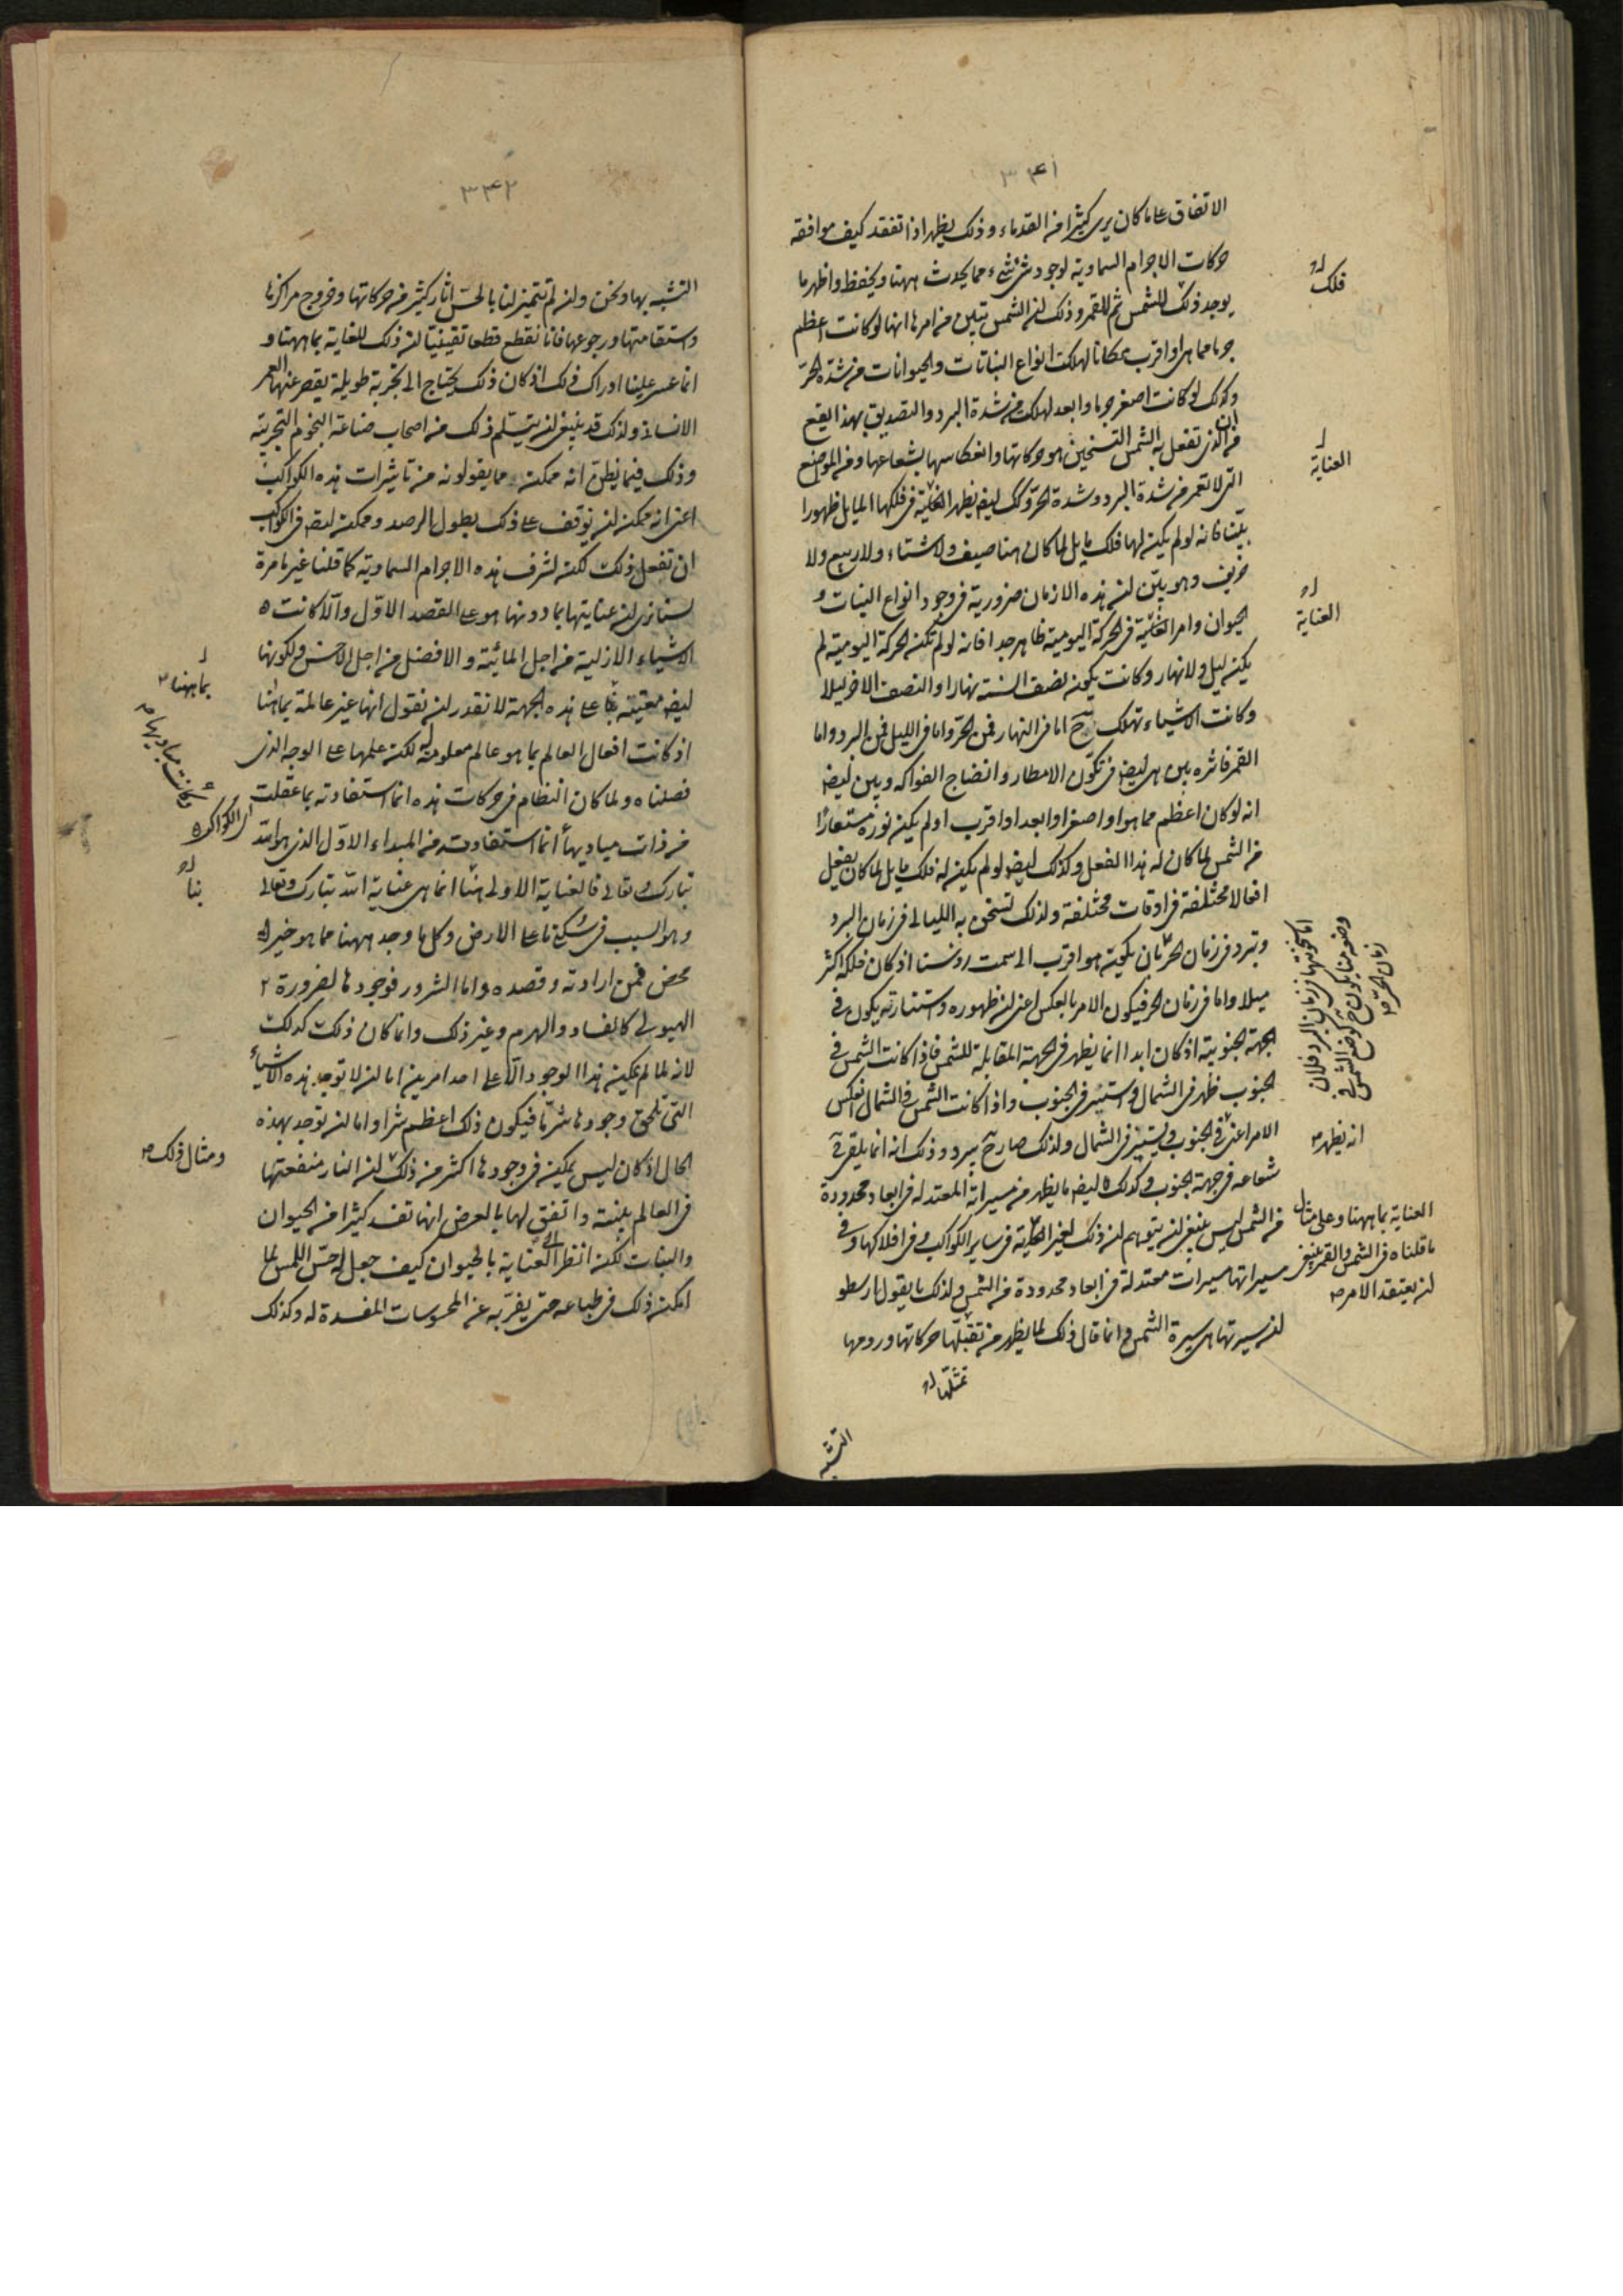 ٣٤١
الاتفاق على ما كان يرى كثيرا من القدماء وذلك يظهر اذا تفقد كيف موافقه
حركات الاجرام السماوية لوجود شئ شئ مما يحدث ههنا ويحفظ واظهر ما
يوجد ذلك للشمس ثم للقمر وذلك ان الشمس تبين من امرها انها لو كانت اعظم
جرما مما هى او اقرب مكانا لهلكت انواع النباتات والحيوانات من شدة الحر
وكذلك لو كانت اصغر جرما وابعد لهلكت من شدة البرد والتصديق بهذا يقع
من ان الذى تفعل به الشمس التسخين هو حركاتها وانعكاسها بشعاعها ومن المواضع
التى لا تعمر من شدة البرد وشدة الحر وكك ايض يظهر العناية فى فلكها المايل ظهورا
بينا فانه لو لم يكن لها فلك مايل لما كان هنا صيف ولا شتاء ولا ربيع ولا
خريف وهو بين ان هذه الازمان ضرورية فى وجود انواع النبات و
الحيوان وامر العناية فى الحركة اليومية ظاهر جدا فانه لو لم تكن الحركة اليومية لم
يكن ليل ولا نهار وكانت يكون نصف السنة نهارا والنصف الاخر ليلا
وكانت الاشياء تهلك ح اما فى النهار فمن الحر واما فى الليل فمن البرد واما
القمر فاثره بين هى ايض فى تكون الامطار وانضاج الفواكه وبين ايض
انه لو كان اعظم مما هو او اصغر او ابعد او اقرب او لم يكن نوره مستعارًا
من الشمس لما كان له هذا الفعل وكذلك ايض لو لم يكن له فلك مايل لما كان يفعل
افعالا مختلفة فى اوقات مختلفة ولذلك تسخن به الليالى فى زمان البرد
وتبرد فى زمان الحر بان يكون هو اقرب الى سمت رؤسنا اذ كان فلكه اكثر
ميلا واما فى زمان الحر فيكون الامر بالعكس اعنى ان ظهوره واستنارته يكون فى
الجهة الجنوبية اذ كان ابدا انما يظهر فى الجهة المقابلة للشمس فاذا كانت الشمس فى
الجنوب ظهر فى الشمال واستتر فى الجنوب واذا كانت الشمس فى الشمال انعكس
الامر اعنى فى الجنوب ويستتر فى الشمال ولذلك صار ح يبرد وذلك انه انما يلقى
شعاعه فى جهة الجنوب وكذلك ايض ما يظهر من مسيراته المعتدلة فى ابعاد محدودة
من الشمس ليس ينبغى ان يتوهم ان ذلك لغير العناية فى ساير الكواكب وفى افلاكها وفى
مسيراتها مسيرات معتدلة فى ابعاد محدودة من الشمس ولذلك ما يقول ارسطو
ان سيرتها هى سيرة الشمس وانما قال ذلك لما يظهر من تقبلها حركاتها ورومها
تمثلها
التشبه
فلك
العناية
العناية
اما سخونتها فى زمان البرد فلان
وضعه منا يكون ح كوضع الشمس فى
زمان الحر
انه يظهر
العناية بما ههنا وعلى مثال
ما قلناه فى الشمس والقمر ينبغى
ان يعتقد الامر
٣٤٢
التشبه بها ونحن وان لم تتميز لنا بالحس اثار كثير من حركاتها وخروج مراكزها
واستقامتها ورجوعها فانا نقطع قطعا يقينيا ان ذلك للعناية بما ههنا و
انما عسر علينا ادراك ذلك اذ كان ذلك يحتاج الى تجربة طويلة يقصر عنها العمر
الانسانى ولذلك قد ينبغى ان يتسلم ذلك من اصحاب صناعة النجوم التجربية
وذلك فيما يظن انه ممكن مما يقولونه من تاثيرات هذه الكواكب
اعنى انه ممكن ان يوقف على ذلك بطول الرصد وممكن ايض فى الكواكب
ان تفعل ذلك لكن لشرف هذه الاجرام السماوية كما قلنا غير ما مرة
لسنا نرى ان عنايتها بما دونها هو على المقصد الاول والا كانت
الاشياء الازلية من اجل المائتة والافضل من اجل الاخس ولكونها
ايض معتنية بنا على هذه الجهة لا نقدر ان نقول انها غير عالمة بما هنا
اذ كانت افعال العالم بما هو عالم معلومة له لكن علمها على الوجه الذى
فصلناه ولما كان النظام فى حركات هذه انما استفادته بما عقلت
من ذات مباديها انما استفادت من المبداء الاول الذى هو الله
تبارك وتعالى فالعناية الاولى هنا انما هى عناية الله تبارك وتعالى
وهو السبب فى سكنى ما على الارض وكل ما وجد ههنا مما هو خير
محض فمن ارادته وقصده واما الشرور فوجودها لضرورة
الهيولى كالفساد والهرم وغير ذلك وانما كان ذلك كذلك
لانه لما لم يمكن هذا الوجود الا على احد امرين اما ان لا توجد هذه الاشياء
التى تلحق وجودها شر ما فيكون ذلك اعظم شرا واما ان توجد بهذه
الحال اذ كان ليس يمكن فى وجودها اكثر من ذلك ان النار منفعتها
فى العالم بينة واتفق لها بالعرض انها تفسد كثيرا من الحيوان
والنبات لكن انظر الى العناية بالحيوان كيف جعل له حس اللمس لما
امكن ذلك فى طباعه حتى يفر به عن المحسوسات المفسدة له وكذلك
بما ههنا
وكانت مباديها
اى الكواكب
بنا
ومثال ذلك